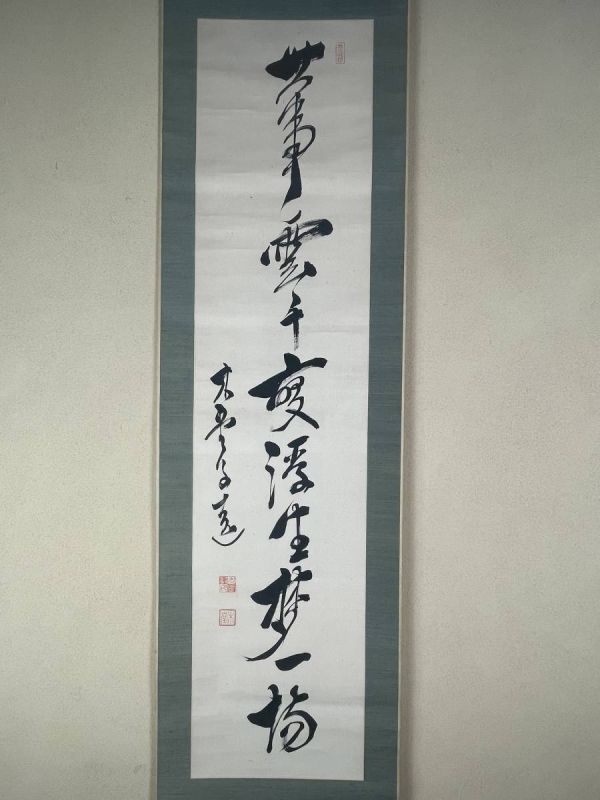 世事雲千変浮生夢一場